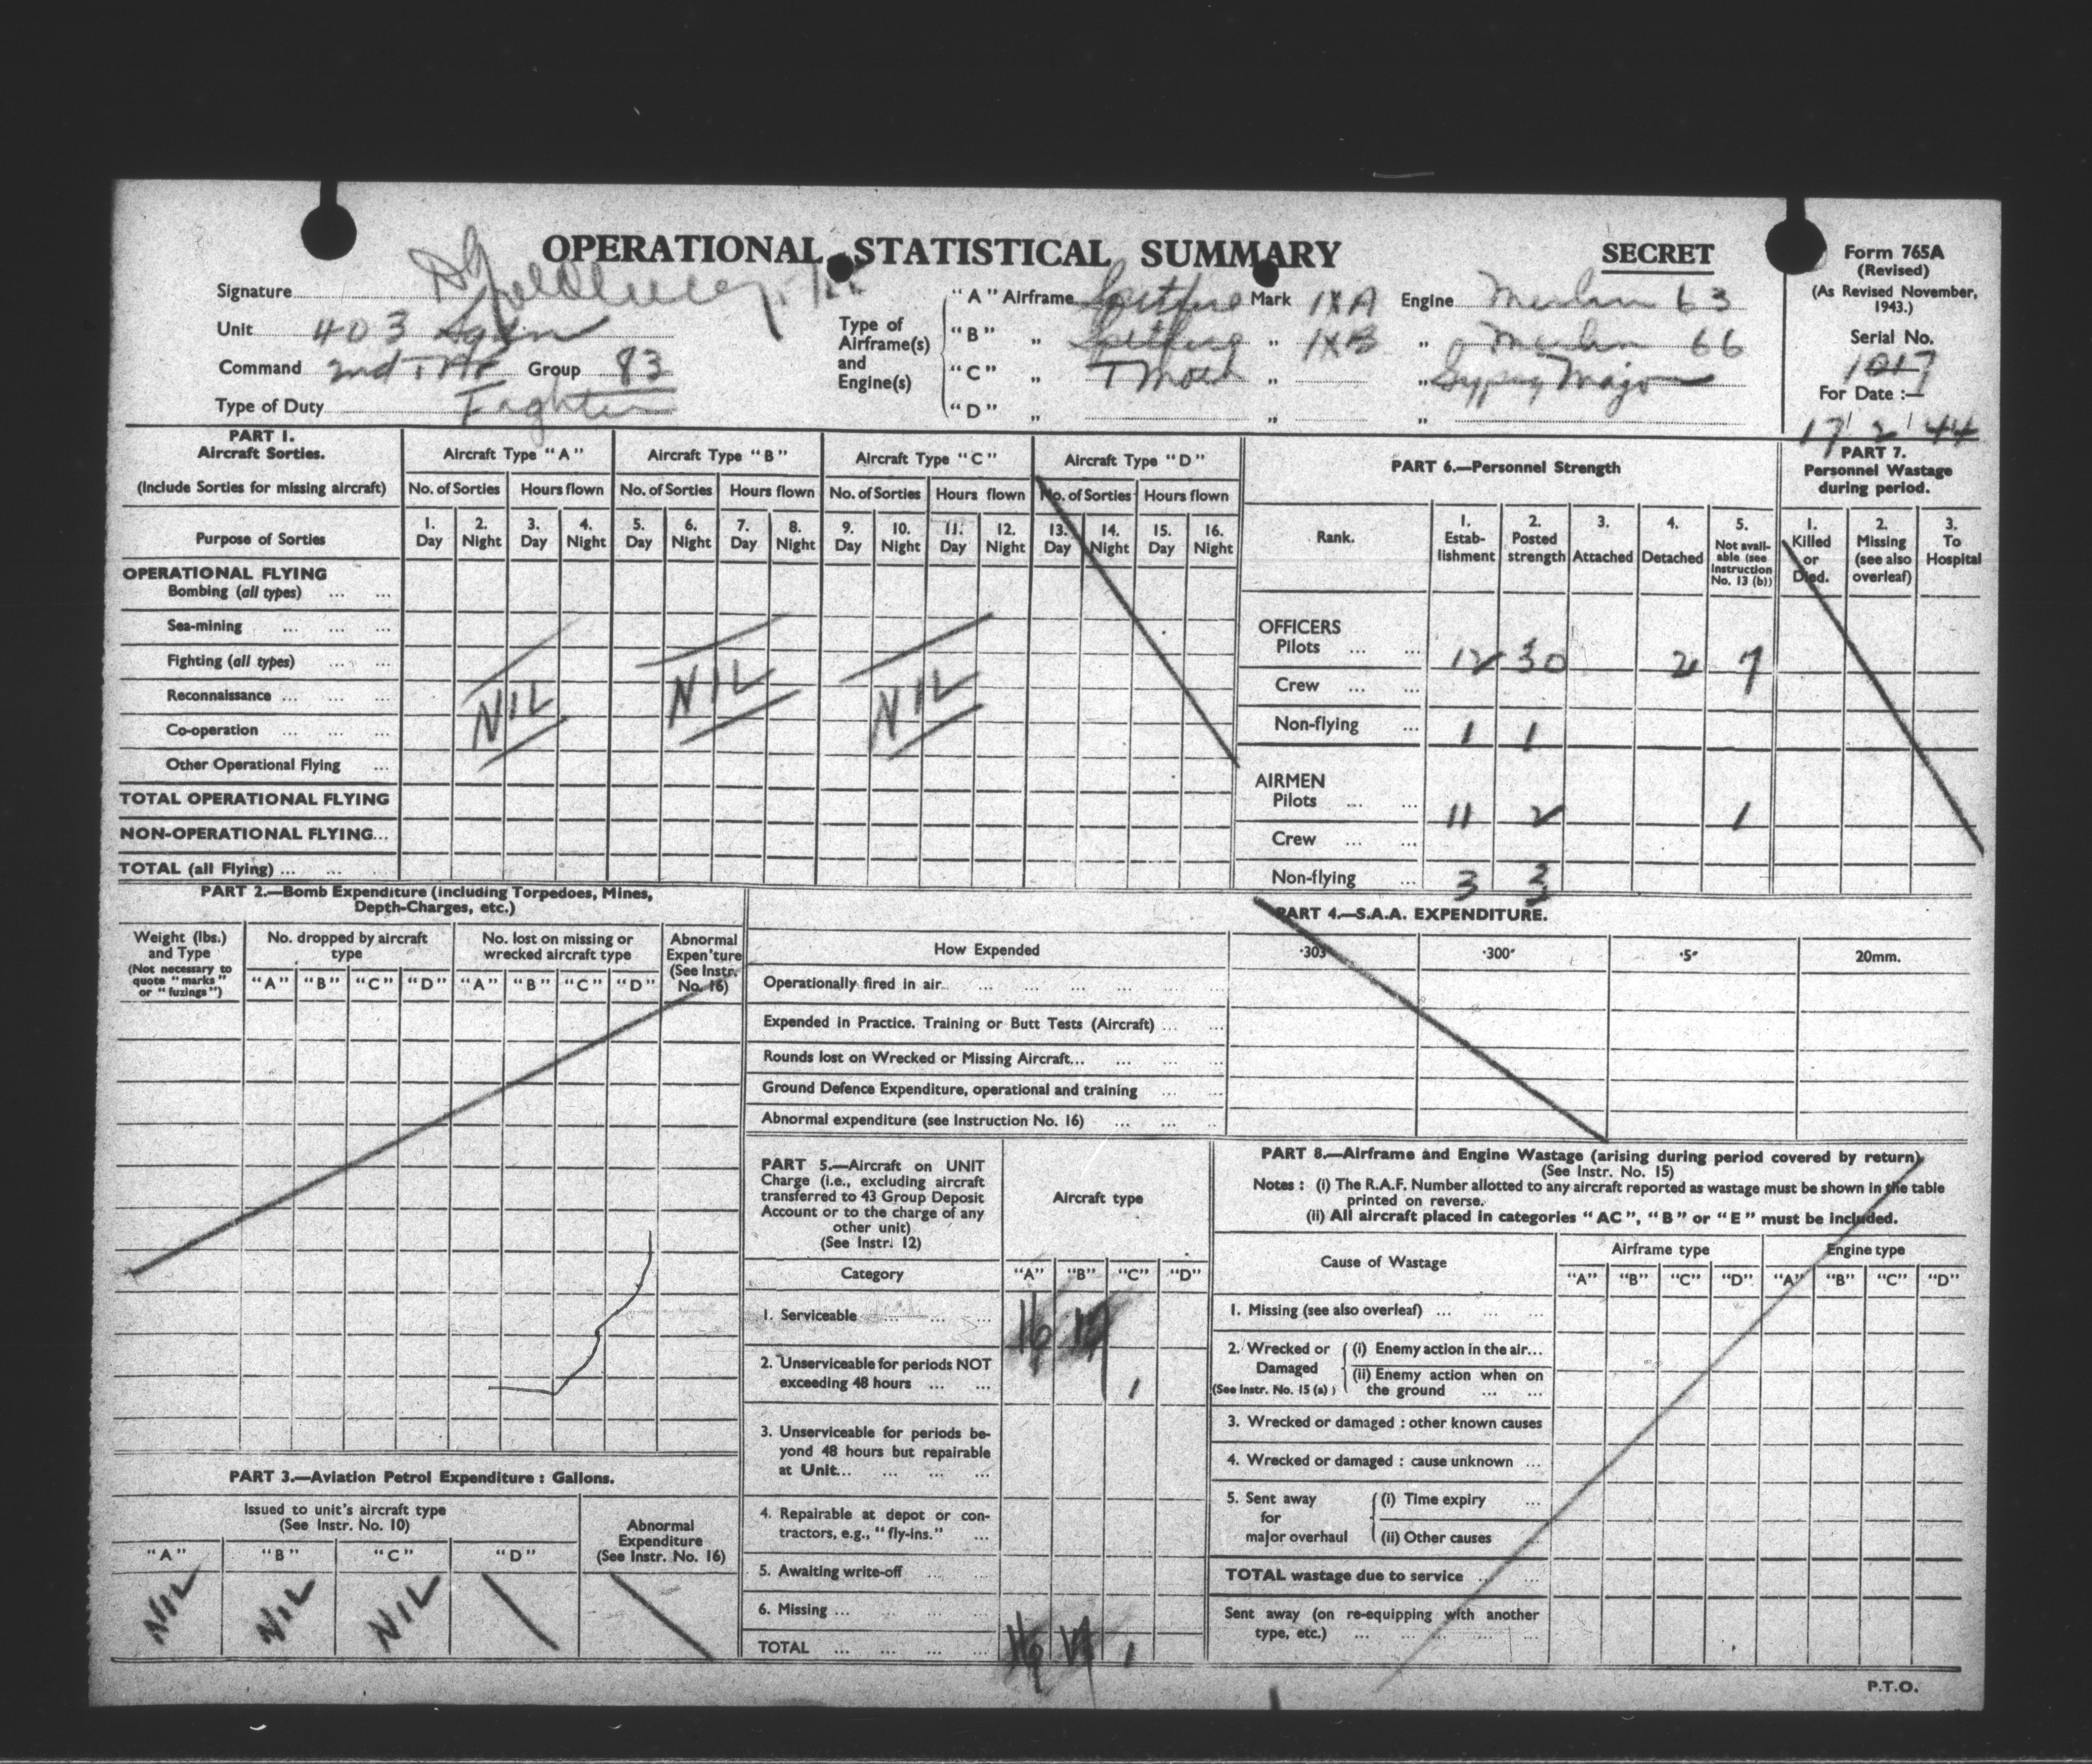 OPERATIONAL STATISTICAL SUMMARY
SECRET
Form 765A
(Revised)
(As Revised November, 1943.)
Serial No.
1017
For Date :—
17 2 44
Signature
Unit 403 Sqdn
Command 2nd TAF Group 83
Type of Duty Fighter
Type of Airframe(s) and Engine(s)
"A" Airframe Spitfire Mark IXA Engine Merlin 63
"B" „ Spitfire „ IXB „ Merlin 66
"C" „ T Moth „ „ Gypsy Major
"D" „ „ „
PART 1.
Aircraft Sorties.
(Include Sorties for missing aircraft)
Aircraft Type "A" Aircraft Type "B" Aircraft Type "C" Aircraft Type "D"
No. of Sorties Hours flown No. of Sorties Hours flown No. of Sorties Hours flown No. of Sorties Hours flown
Purpose of Sorties
1. Day 2. Night 3. Day 4. Night 5. Day 6. Night 7. Day 8. Night 9. Day 10. Night 11. Day 12. Night 13. Day 14. Night 15. Day 16. Night
OPERATIONAL FLYING
Bombing (all types) ... ...
Sea-mining ... ... ...
Fighting (all types) ... ...
Reconnaissance ... ... ...
NIL NIL NIL
Co-operation ... ... ...
Other Operational Flying ...
TOTAL OPERATIONAL FLYING
NON-OPERATIONAL FLYING...
TOTAL (all Flying) ... ...
PART 6.—Personnel Strength
Rank.
1. Estab-lishment
2. Posted strength
3. Attached
4. Detached
5. Not avail-able (see Instruction No. 13 (b))
OFFICERS
Pilots ... ... 12 30 2 7
Crew ... ...
Non-flying ... 1 1
AIRMEN
Pilots ... ... 11 2 1
Crew ... ...
Non-flying ... 3 3
PART 7.
Personnel Wastage
during period.
1. Killed or Died.
2. Missing (see also overleaf)
3. To Hospital
PART 2.—Bomb Expenditure (including Torpedoes, Mines,
Depth-Charges, etc.)
Weight (lbs.) and Type
(Not necessary to quote "marks" or "fuzings")
No. dropped by aircraft type
No. lost on missing or wrecked aircraft type
Abnormal Expen'ture (See Instr. No. 16)
"A" "B" "C" "D" "A" "B" "C" "D"
PART 4.—S.A.A. EXPENDITURE.
How Expended ·303 ·300" ·5" 20mm.
Operationally fired in air ... ... ... ... ... ...
Expended in Practice. Training or Butt Tests (Aircraft) ... ...
Rounds lost on Wrecked or Missing Aircraft... ... ... ...
Ground Defence Expenditure, operational and training ... ...
Abnormal expenditure (see Instruction No. 16) ... ... ...
PART 3.—Aviation Petrol Expenditure : Gallons.
Issued to unit's aircraft type
(See Instr. No. 10)
Abnormal Expenditure (See Instr. No. 16)
"A" "B" "C" "D"
NIL NIL NIL
PART 5.—Aircraft on UNIT
Charge (i.e., excluding aircraft
transferred to 43 Group Deposit
Account or to the charge of any
other unit)
(See Instr. 12)
Aircraft type
Category "A" "B" "C" "D"
1. Serviceable ... ... ... 16
2. Unserviceable for periods NOT
exceeding 48 hours ... ... 1
3. Unserviceable for periods be-
yond 48 hours but repairable
at Unit... ... ... ...
4. Repairable at depot or con-
tractors, e.g., "fly-ins." ...
5. Awaiting write-off ... ...
6. Missing ... ... ... ...
TOTAL ... ... ... ... 16 1
PART 8.—Airframe and Engine Wastage (arising during period covered by return)
(See Instr. No. 15)
Notes : (i) The R.A.F. Number allotted to any aircraft reported as wastage must be shown in the table
printed on reverse.
(ii) All aircraft placed in categories "AC", "B" or "E" must be included.
Cause of Wastage
Airframe type Engine type
"A" "B" "C" "D" "A" "B" "C" "D"
1. Missing (see also overleaf) ... ... ...
2. Wrecked or Damaged (See Instr. No. 15 (a) )
(i) Enemy action in the air...
(ii) Enemy action when on the ground ... ...
3. Wrecked or damaged : other known causes
4. Wrecked or damaged : cause unknown ...
5. Sent away for major overhaul
(i) Time expiry ...
(ii) Other causes ...
TOTAL wastage due to service ... ...
Sent away (on re-equipping with another
type, etc.) ... ... ... ... ...
P.T.O.